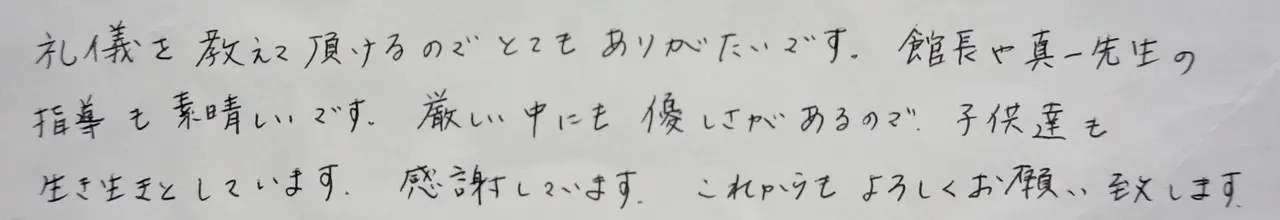 礼儀を教えて頂けるのでとてもありがたいです。館長や真一先生の
指導も素晴しいです。厳しい中にも優しさがあるので、子供達も
生き生きとしています。感謝しています。これからもよろしくお願い致します。